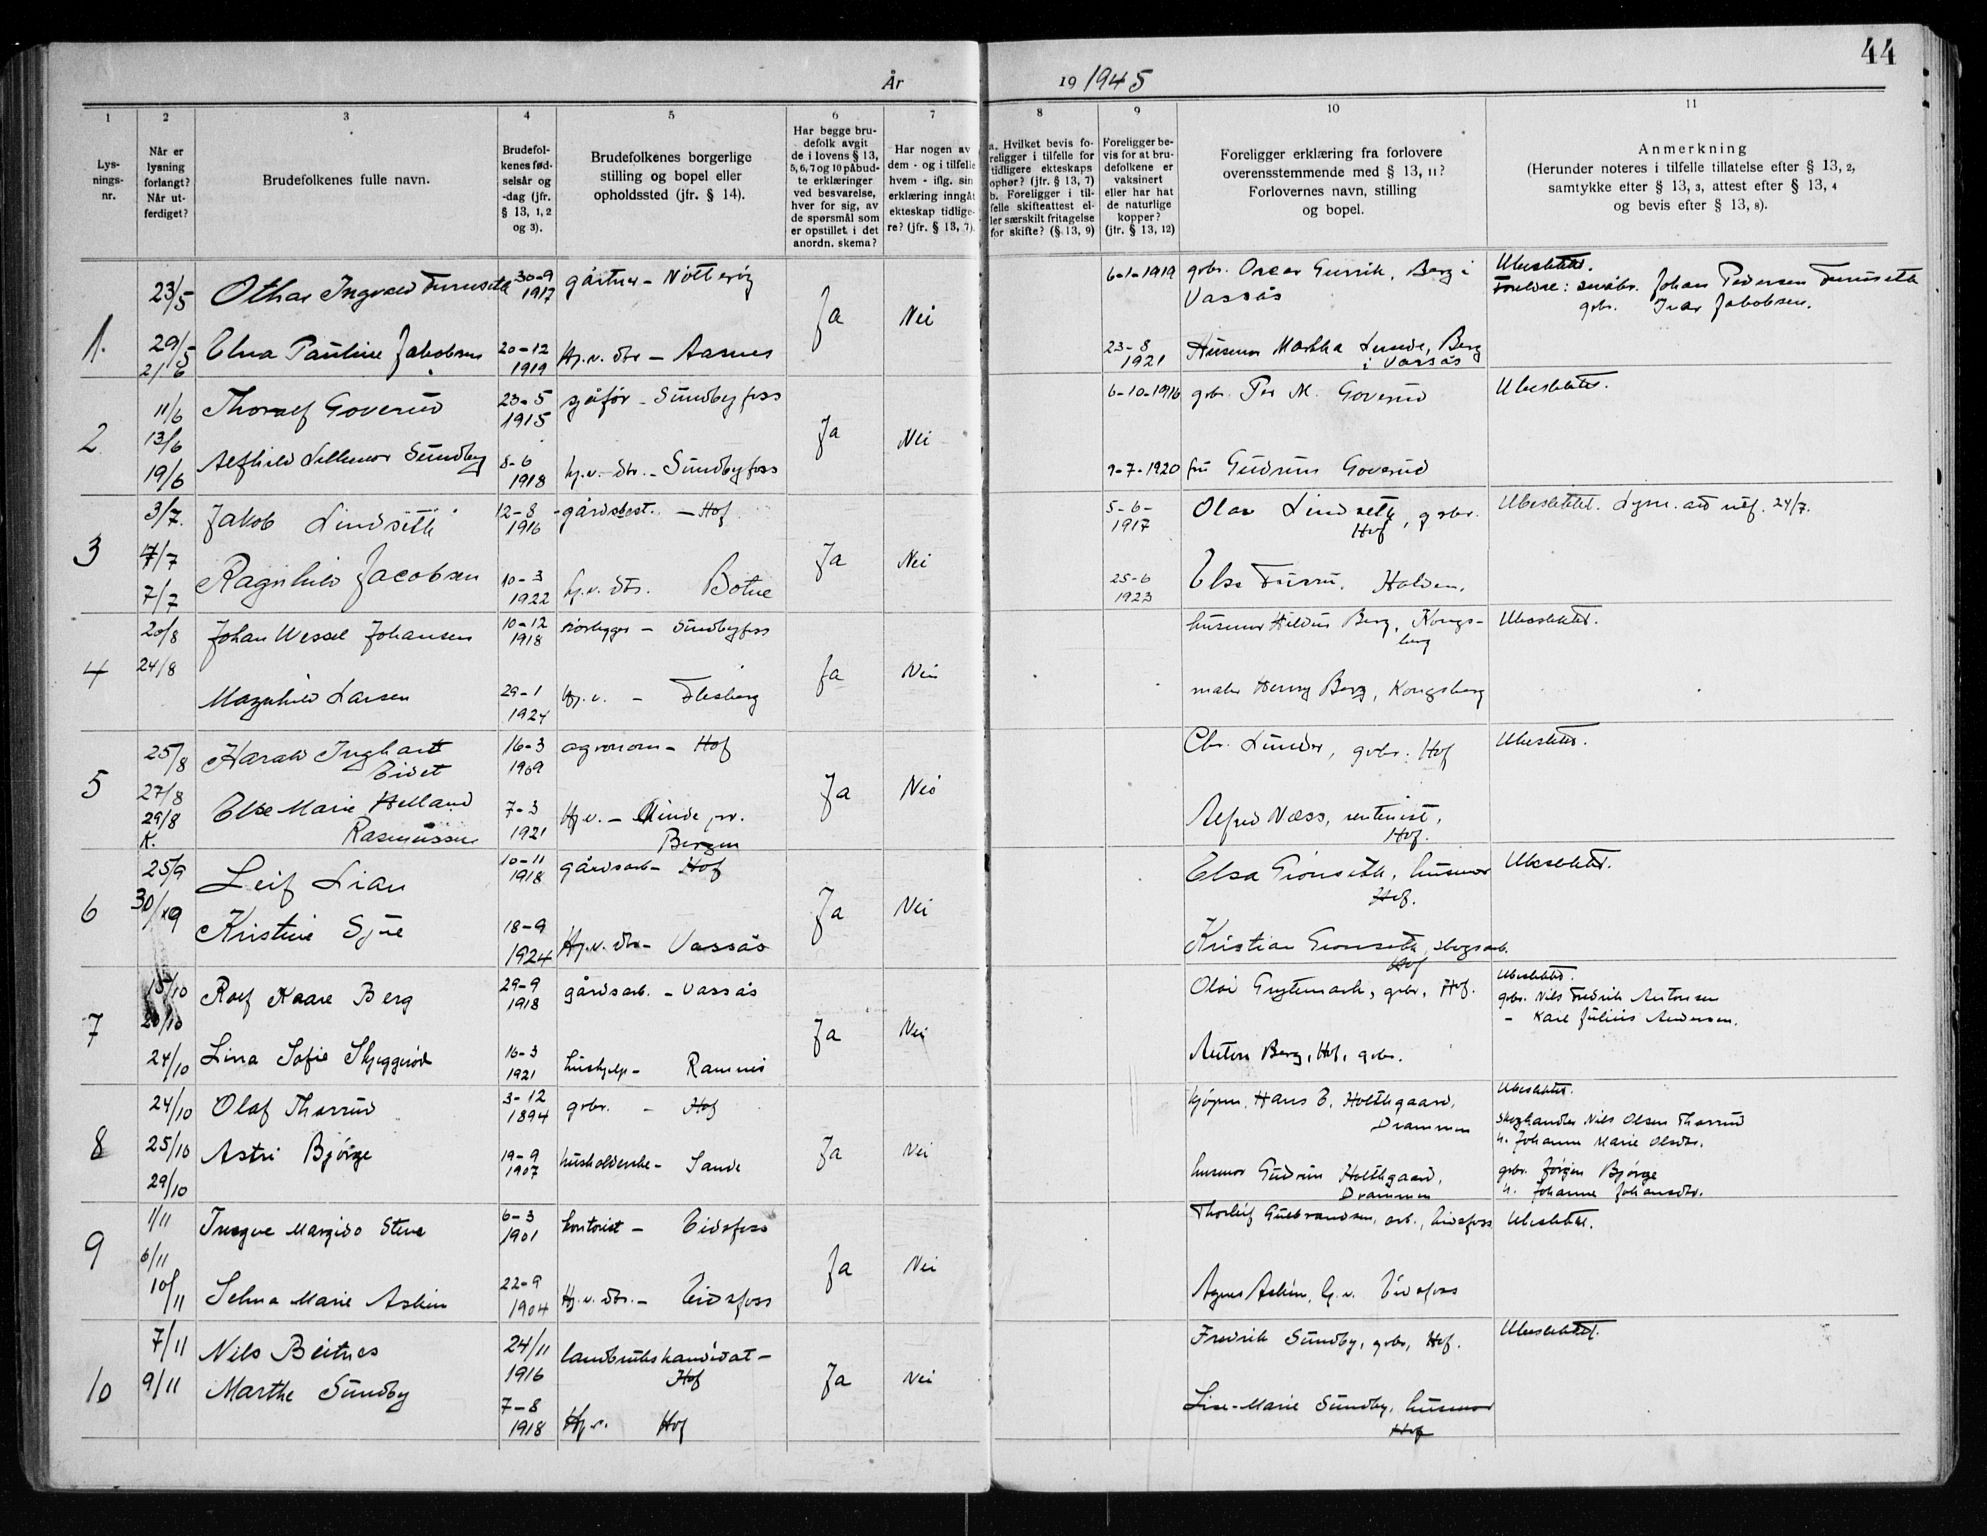 44
År 19 1945
1 2 3 4 5 6 7 8 9 10 11
Lys-
nings-
nr.
Når er
lysning
forlangt?
Når ut-
ferdiget?
Brudefolkenes fulle navn.
Brudefol-
kenes fød-
selsår og
-dag (jfr.
§ 13, 1, 2
og 3).
Brudefolkenes borgerlige
stilling og bopel eller
opholdssted (jfr. § 14).
Har begge bru-
defolk avgit
de i lovens § 13,
5, 6, 7 og 10 påbud-
te erklæringer
ved besvarelse,
hver for sig, av
de spørsmål som
er opstillet i det
anordn. skema?
Har nogen av
dem - og i tilfelle
hvem - iflg. sin
erklæring inngått
ekteskap tidlige-
re? (jfr. § 13, 7).
a. Hvilket bevis fo-
religger i tilfelle for
tidligere ekteskaps
ophør? (jfr. § 13, 7)
b. Foreligger i til-
felle skifteattest el-
ler særskilt fritagelse
for skifte? (§ 13, 9)
Foreligger be-
vis for at bru-
defolkene er
vaksinert
eller har hat
de naturlige
kopper?
(jfr. § 13, 12)
Foreligger erklæring fra forlovere
overensstemmende med § 13, 11?
Forlovernes navn, stilling
og bopel.
Anmerkning
(Herunder noteres i tilfelle tillatelse efter § 13, 2,
samtykke efter § 13, 3, attest efter § 13, 4
og bevis efter § 13, 8).
1. 23/5 Othar Ingvald Furuseth 30-9 1917 gårtner - Nøtterøy Ja Nei 6-1-1919 gbr. Oscar Gurrik, Berg i Vassås Ubeslektet.
Foreldre: småbr. Johan Pedersen Furuseth
gbr. Ivar Jakobsen.
29/5 21/6 Elna Pauline Jakobsen 20-12 1919 Hj.v. dtr - Aasnes 23-8 1921 Husmor Martha Lunde, Berg i Vassås
2 11/6 Thoralf Goverud 23-5 1915 sjåfør - Sundbyfoss Ja Nei 6-10-1916 gbr. Per M. Goverud Ubeslektet.
13/6
19/6 Alfhild Lillemor Sundby 8-6 1918 hj.v. dtr. - Sundbyfoss 9-7-1920 fru Gudrun Goverud
3 3/7. Jakob Lindseth 12-8 1916 - gårdsbest. - Hof Ja Nei 5-6-1917 Olav Lindseth, gbr. Hof Ubeslektet. Lysn. att utf. 24/7.
7/7
7/7 Ragnhild Jacobsen 10-3 1922 hj.v. dtr. Botne 25-6 1923 Else Furru. Halden.
4 20/8 Johan Wessel Johansen 10-12 1918 - Sundbyfoss Ja Nei husmor Hildur Berg, Kongs-
berg Ubeslektet.
24/8
Magnhild Larsen 29-1 1924 Hj.v. - Flesberg maler Henry Berg, Kongsberg
5 25/8 Harald Inghart
Eidet 16-3 1909 agronom - Hof Ja Nei Chr. Lunder, gbr. Hof Ubeslektet.
27/8
29/8
K. Else Marie Helland
Rasmussen 7-3 1921 Hj.v. - Minde pr.
Bergen Alfred Næss, rentenist,
Hof.
6 25/9 Leif Lian 10-11 1918 gårdsarb - Hof Ja Nei Elsa Grønseth, husmor
Hof. Ubeslektet.
30/9 Kristine 18-9 1924 Hj.v. dtr - Vassås Kristian Grønseth, skogsarb.
Hof
7 15/10 Rolf Kaare Berg 29-9 1918 gårdsarb. - Vassås Ja Nei Olav Grytemark, gbr, Hof. Ubeslektet.
gbr. Nils Fredrik Antonsen
- Karl Julius Andersen.
20/10
24/10 Lina Sofie Skjeggerød 16-3 1921 hushjelp - Ramnes Anton Berg, Hof, gbr.
8 24/10 Olaf Thorrud 3-12 1894 gbr. - Hof Ja Nei kjøpm. Hans E. Holthgaard,
Drammen Ubeslektet.
skoghandler Nils Olsen Thorrud
h. Johanne Marie Olsdtr.
25/10 Astri Bjørge 19-9 1907 husholderske - Sande husmor Gudrun Holthgaard,
Drammen gbr. Jørgen Bjørge
h. Johanne Johansdtr.
29/10
9 1/11 Trygve Margido Stene 6-3 1901 kontorist - Eidsfoss Ja Nei Thorleif Gulbrandsen, arb., Eidsfoss Ubeslektet.
6/11
10/11 Selma Marie Askim 22-9 1904 Hj.v. dtr. - Eidsfoss Agnes Askim, hj.v. Eidsfoss
10 7/11 Nils Beitnes 24/11 1916 landbrukskandidat -
Hof Ja Nei Fredrik Sundby, gbr, Hof. Ubeslektet.
9/11 Marthe Sundby 7-8 1918 Hj.v. Hof Lise-Marie Sundby, husmor
Hof